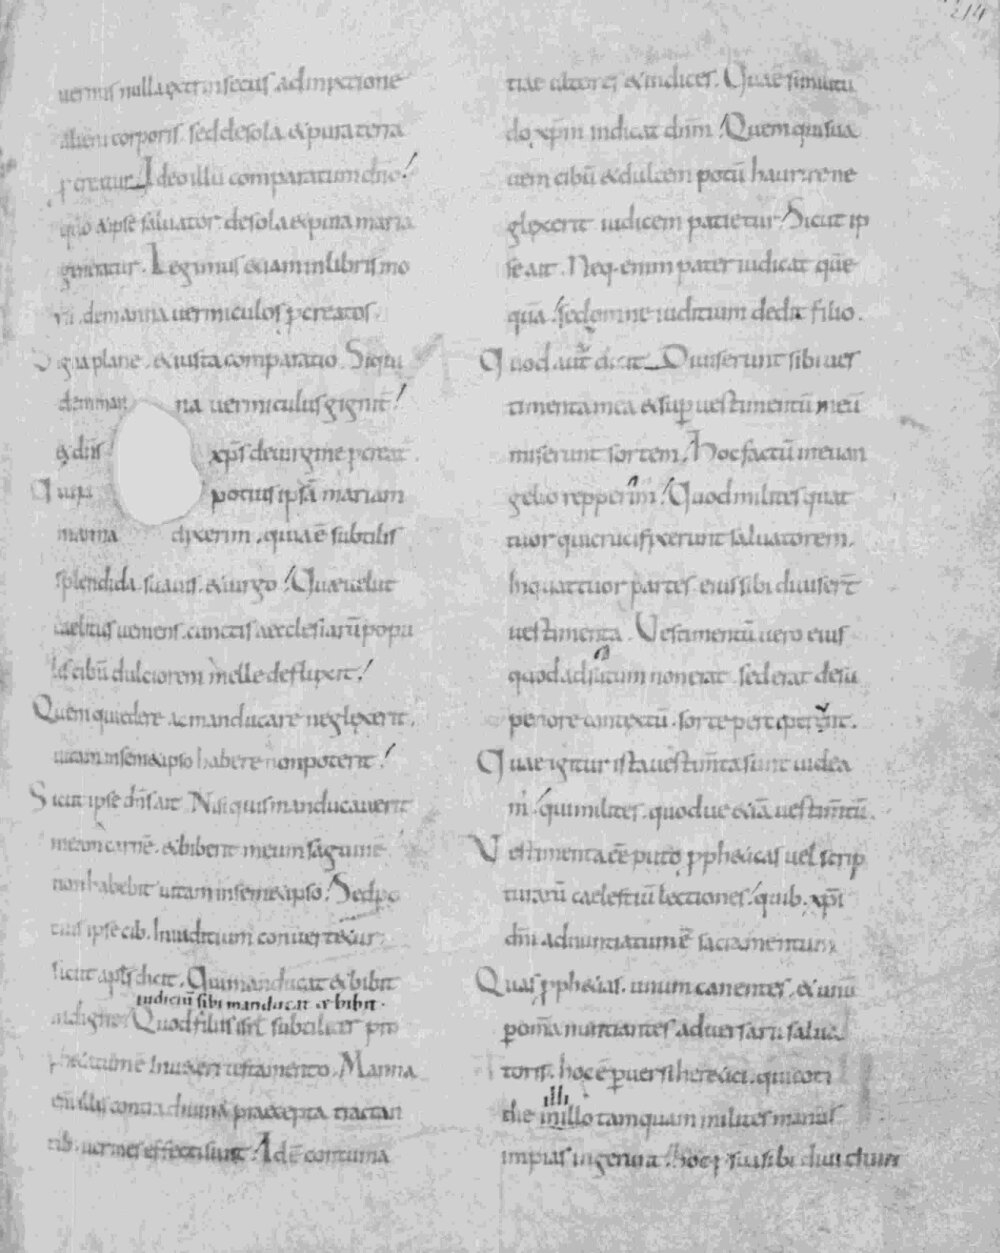 214
uermis nulla extrinsecus admixtione
alieni corporis. sed de sola & pura terra
procreatur. Ideo illū comparatum dn̄o!
quo & ipse saluator de sola & pura maria
generatur. Legimus etiam in libris mo
ysi. de manna uermiculos ꝓcreatos.
Digna plane. & iusta comparatio. Siqui
dem man na uermiculus gignit!
& dn̄s xp̄s de uirgine ꝓcreatur.
Quin potius ipsā mariam
manna dixerim. quia ē subtilis
splendida. suauis. & uirgo! Quae uelut
caelitus ueniens. cunctis aecclesiarū popu
lis cibū dulciorem melle defluxit!
Quem qui edere ac manducare neglexerit.
uitam in semetipso habere non poterit!
Sicut ipse dn̄s ait. Nisi quis manducauerit
meam carnē. & biberit meum sāguinē
non habebit uitam in semetipso! Sed po
tius ipse cib. In iudicium conuertetur.
sicut apl̄s dicit. Qui manducat & bibit
iudiciū sibi manducat & bibit.
indigne! Quod filiis isrl̄ subolear pro
phetatiōne In ueteri testamento. Manna
eīm illis contra diuina praecepta tractan
tib. uermes effecti sunt! Adē contuma
tiae ultores & iudices. Quae similitu
do. xp̄m iudicat dnm̄! Quem qui sua
uem cibū & dulcem potū haurire ne
glexerit iudicem patietur! Sicut ip
se ait. Neq. enim pater iudicat quē
quā! sed omne iuditium dedit filio.
Quod aut̄ dicit. Diuiserunt sibi ues
timenta mea & suꝑ uestimentū meū
miserunt sortem! Hoc factū in euan
gelio repperim̄! Quod milites quat
tuor qui crucifixerunt saluatorem.
In quattuor partes eius sibi diuiser̄t
uestimenta. Uestimentū uero eius
quod adsutum non erat. sed erat desu
periore contextū. sorte
Quae igitur ista uestim̄ta sunt uidea
m̄! qui milites. quod ue & iā uestim̄tū.
Uestimenta eē puto ꝓpheticas uel scrip
turarū caelestiū lectiones! quib. xp̄i
dn̄i adnuntiatum ē sacramentum.
Quas ꝓphetias. unum canentes. & unū
ꝑ om̄a nuntiantes aduersarii salua
toris. hoc ē ꝑuersi heretici. qui coti
illi
die in illo tamquam milites manus
impias ingerunt! hoc sibi diuidun